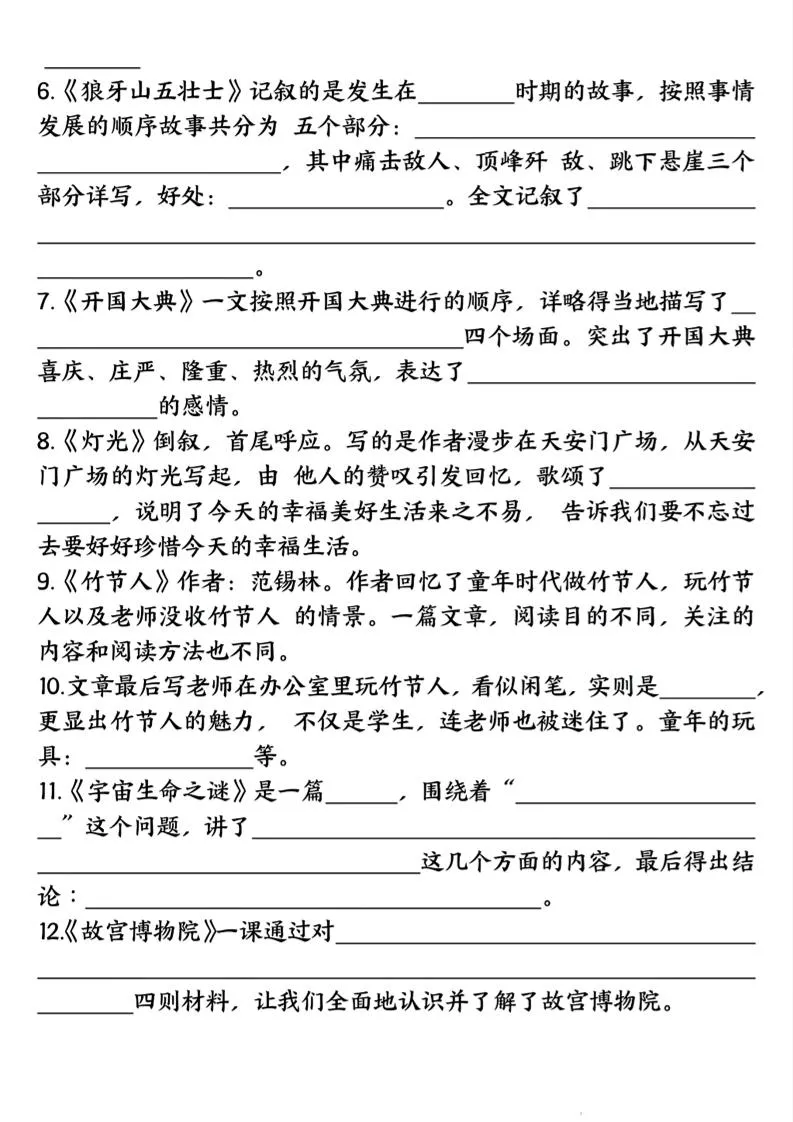 ________
6.《狼牙山五壮士》记叙的是发生在________时期的故事，按照事情
发展的顺序故事共分为 五个部分：____________________________
____________________，其中痛击敌人、顶峰歼 敌、跳下悬崖三个
部分详写，好处：__________________。全文记叙了______________
____________________________________________________________
__________________。
7.《开国大典》一文按照开国大典进行的顺序，详略得当地描写了__
____________________________________四个场面。突出了开国大典
喜庆、庄严、隆重、热烈的气氛，表达了________________________
__________的感情。
8.《灯光》倒叙，首尾呼应。写的是作者漫步在天安门广场，从天安
门广场的灯光写起，由 他人的赞叹引发回忆，歌颂了____________
______，说明了今天的幸福美好生活来之不易， 告诉我们要不忘过
去要好好珍惜今天的幸福生活。
9.《竹节人》作者：范锡林。作者回忆了童年时代做竹节人，玩竹节
人以及老师没收竹节人 的情景。一篇文章，阅读目的不同，关注的
内容和阅读方法也不同。
10.文章最后写老师在办公室里玩竹节人，看似闲笔，实则是________，
更显出竹节人的魅力， 不仅是学生，连老师也被迷住了。童年的玩
具：______________等。
11.《宇宙生命之谜》是一篇______，围绕着“____________________
__”这个问题，讲了__________________________________________
________________________________这几个方面的内容，最后得出结
论：______________________________________。
12.《故宫博物院》一课通过对___________________________________
____________________________________________________________
________四则材料，让我们全面地认识并了解了故宫博物院。